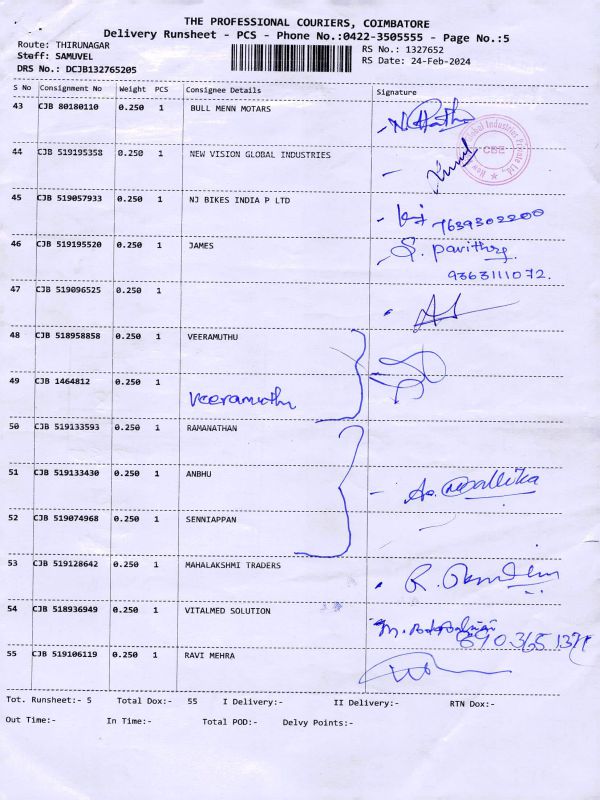 THE PROFESSIONAL COURIERS, COIMBATORE
Delivery Runsheet - PCS - Phone No.:0422-3505555 - Page No.:5
Route: THIRUNAGAR
RS No.: 1327652
Staff: SAMUVEL
RS Date: 24-Feb-2024
DRS No.: DCJB132765205
S No Consignment No Weight PCS Consignee Details Signature
43 CJB 80180110 0.250 1 BULL MENN MOTARS
44 CJB 519195358 0.250 1 NEW VISION GLOBAL INDUSTRIES
CBE
45 CJB 519057933 0.250 1 NJ BIKES INDIA P LTD
7639302200
46 CJB 519195520 0.250 1 JAMES S. Pavithra
9363111072.
47 CJB 519096525 0.250 1
48 CJB 518958858 0.250 1 VEERAMUTHU
49 CJB 1464812 0.250 1 Veeramuthu
50 CJB 519133593 0.250 1 RAMANATHAN
51 CJB 519133430 0.250 1 ANBHU
52 CJB 519074968 0.250 1 SENNIAPPAN
53 CJB 519128642 0.250 1 MAHALAKSHMI TRADERS
54 CJB 518936949 0.250 1 VITALMED SOLUTION
55 CJB 519106119 0.250 1 RAVI MEHRA
Tot. Runsheet:- 5 Total Dox:- 55 I Delivery:- II Delivery:- RTN Dox:-
Out Time:- In Time:- Total POD:- Delvy Points:-